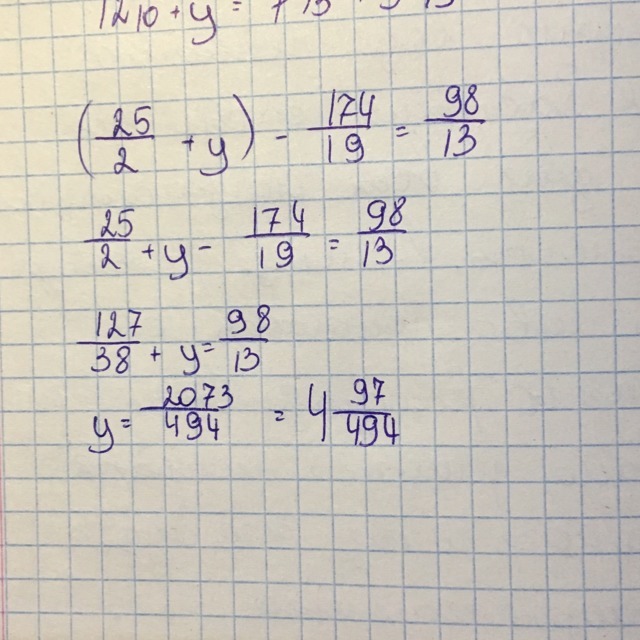 12 10 + y =
(25/2 + y) - 174/19 = 98/13
25/2 + y - 174/19 = 98/13
127/38 + y = 98/13
y = 2073/494 = 4 97/494